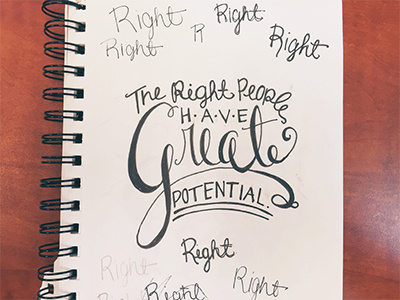 Right
Right
Right R Right
The Right People
H·A·V·E
Great
POTENTIAL.
Right
Right
Right
Right